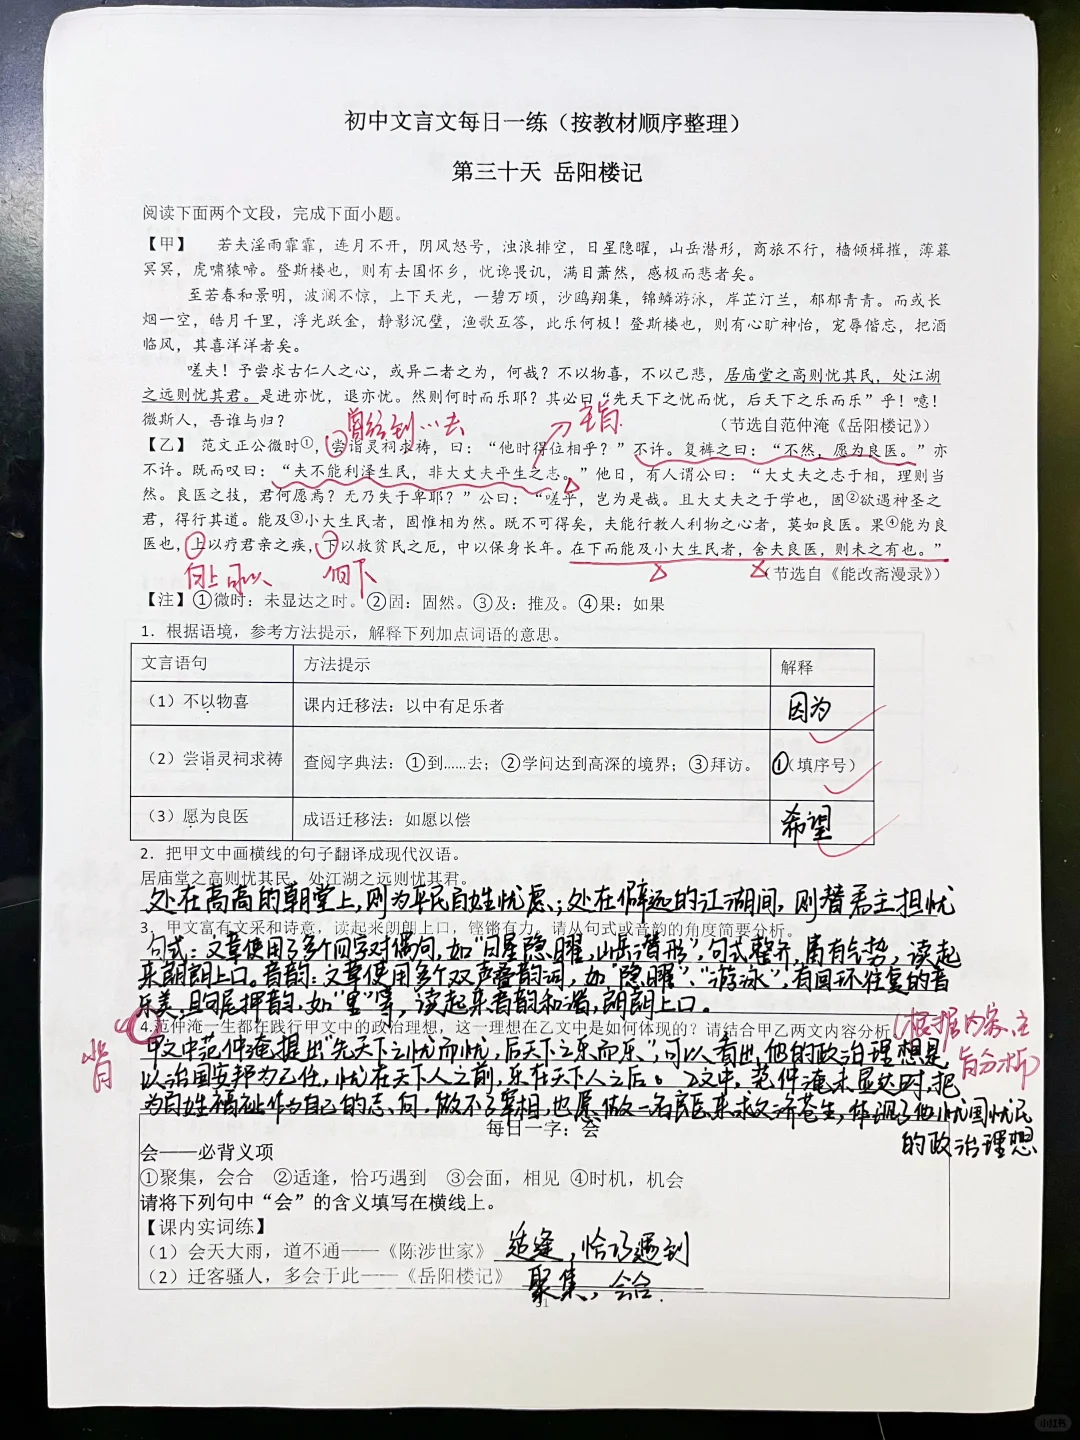 初中文言文每日一练（按教材顺序整理）
第三十天 岳阳楼记
阅读下面两个文段，完成下面小题。
【甲】 若夫淫雨霏霏，连月不开，阴风怒号，浊浪排空，日星隐曜，山岳潜形，商旅不行，樯倾楫摧，薄暮
冥冥，虎啸猿啼。登斯楼也，则有去国怀乡，忧谗畏讥，满目萧然，感极而悲者矣。
至若春和景明，波澜不惊，上下天光，一碧万顷，沙鸥翔集，锦鳞游泳，岸芷汀兰，郁郁青青。而或长
烟一空，皓月千里，浮光跃金，静影沉璧，渔歌互答，此乐何极！登斯楼也，则有心旷神怡，宠辱偕忘，把酒
临风，其喜洋洋者矣。
嗟夫！予尝求古仁人之心，或异二者之为，何哉？不以物喜，不以己悲，居庙堂之高则忧其民，处江湖
之远则忧其君。是进亦忧，退亦忧。然则何时而乐耶？其必曰“先天下之忧而忧，后天下之乐而乐”乎！噫！
微斯人，吾谁与归？ （节选自范仲淹《岳阳楼记》）
曾经到…去
主旨
【乙】 范文正公微时①，尝诣灵祠求祷，曰：“他时得位相乎？”不许。复祷之曰：“不然，愿为良医。”亦
不许。既而叹曰：“夫不能利泽生民，非大丈夫平生之志。”他日，有人谓公曰：“大丈夫之志于相，理则当
然。良医之技，君何愿焉？无乃失于卑耶？”公曰：“嗟乎，岂为是哉。且大丈夫之于学也，固②欲遇神圣之
君，得行其道。能及③小大生民者，固惟相为然。既不可得矣，夫能行救人利物之心者，莫如良医。果④能为良
医也，上以疗君亲之疾，下以救贫民之厄，中以保身长年。在下而能及小大生民者，舍夫良医，则未之有也。”
向上可以
向下
（节选自《能改斋漫录》）
【注】①微时：未显达之时。②固：固然。③及：推及。④果：如果
1．根据语境，参考方法提示，解释下列加点词语的意思。
文言语句 方法提示 解释
（1）不以物喜 课内迁移法：以中有足乐者 因为
（2）尝诣灵祠求祷 查阅字典法：①到……去；②学问达到高深的境界；③拜访。 ①（填序号）
（3）愿为良医 成语迁移法：如愿以偿 希望
2．把甲文中画横线的句子翻译成现代汉语。
居庙堂之高则忧其民，处江湖之远则忧其君。
处在高高的朝堂上，则为平民百姓忧虑；处在僻远的江湖间，则替君主担忧
3．甲文富有文采和诗意，读起来朗朗上口，铿锵有力。请从句式或音韵的角度简要分析。
句式：文章使用了多个四字对偶句，如“日星隐曜，山岳潜形”，句式整齐，富有气势，读起
来朗朗上口。音韵：文章使用多个双声叠韵词，如“隐曜”、“游泳”，有回环往复的音
乐美，且句尾押韵，如“里”等，读起来音韵和谐，朗朗上口。
4.范仲淹一生都在践行甲文中的政治理想，这一理想在乙文中是如何体现的？请结合甲乙两文内容分析
（根据内容、主
旨分析）
背
甲文中范仲淹提出“先天下之忧而忧，后天下之乐而乐”，可以看出他的政治理想是
以治国安邦为己任，忧在天下人之前，乐在天下人之后。乙文中，范仲淹未显达时，把
为百姓福祉作为自己的志向，做不了宰相，也愿做一名良医来求救济苍生，体现了他忧国忧民
的政治理想
每日一字：会
会——必背义项
①聚集，会合 ②适逢，恰巧遇到 ③会面，相见 ④时机，机会
请将下列句中“会”的含义填写在横线上。
【课内实词练】
（1）会天大雨，道不通——《陈涉世家》 适逢，恰巧遇到
（2）迁客骚人，多会于此——《岳阳楼记》 聚集，会合.
31
小红书